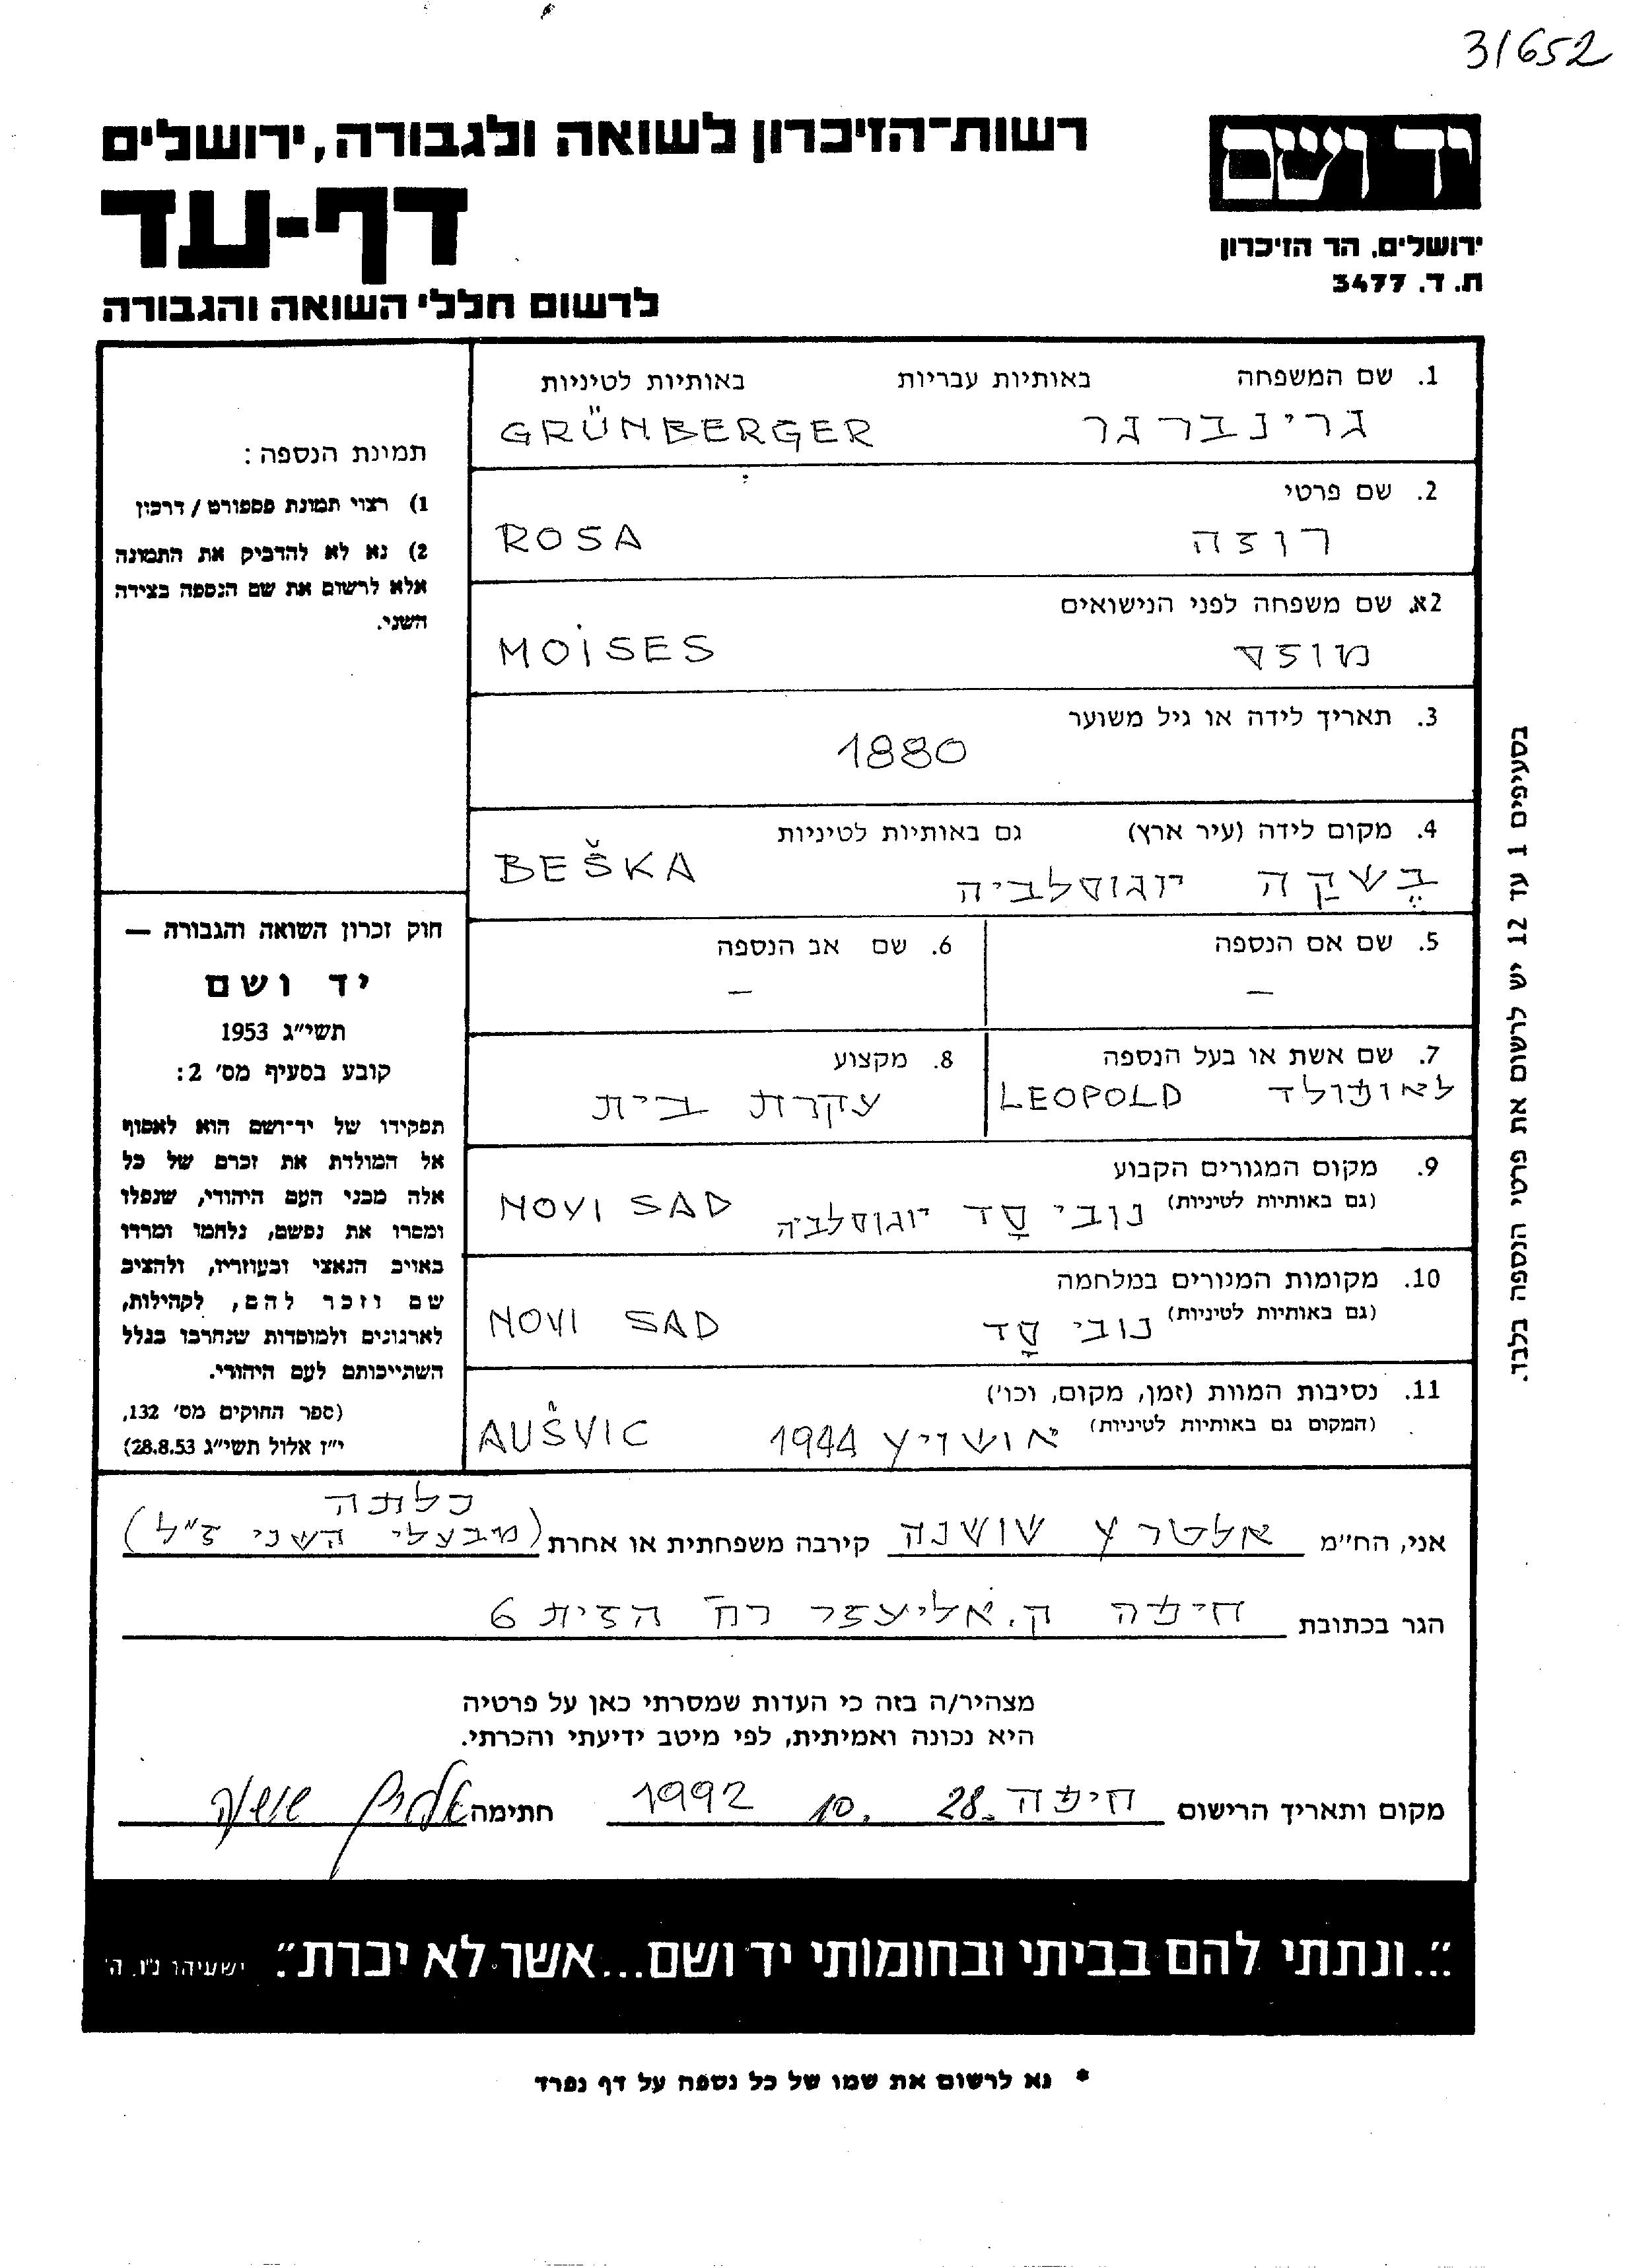 31652
רשות־הזיכרון לשואה ולגבורה, ירושלים
דף-עד
לרשום חללי השואה והגבורה
יד ושם
ירושלים, הר הזיכרון
ת. ד. 3477
1. שם המשפחה באותיות עבריות באותיות לטיניות
גרינברגר GRÜNBERGER
2. שם פרטי
רוזה ROSA
2א. שם משפחה לפני הנישואים
מוזס MOISES
3. תאריך לידה או גיל משוער
1880
4. מקום לידה (עיר ארץ) גם באותיות לטיניות
בֶּשקָה יוגוסלביה BEŠKA
5. שם אם הנספה
—
6. שם אב הנספה
—
7. שם אשת או בעל הנספה
לאופולד LEOPOLD
8. מקצוע
עקרת בית
9. מקום המגורים הקבוע
(גם באותיות לטיניות) נובי סָד יוגוסלביה NOVI SAD
10. מקומות המגורים במלחמה
(גם באותיות לטיניות) נובי סָד NOVI SAD
11. נסיבות המוות (זמן, מקום, וכו')
(המקום גם באותיות לטיניות) אושויץ 1944 AUŠVIC
תמונת הנספה:
1) רצוי תמונת פספורט / דרכון
2) נא לא להדביק את התמונה
אלא לרשום את שם הנספה בצידה
השני.
חוק זכרון השואה והגבורה —
יד ושם
תשי״ג 1953
קובע בסעיף מס׳ 2:
תפקידו של יד־ושם הוא לאסוף
אל המולדת את זכרם של כל
אלה מבני העם היהודי, שנפלו
ומסרו את נפשם, נלחמו ומרדו
באויב הנאצי ובעוזריו, ולהציב
שם וזכר להם, לקהילות,
לארגונים ולמוסדות שנחרבו בגלל
השתייכותם לעם היהודי.
(ספר החוקים מס׳ 132,
י״ז אלול תשי״ג 28.8.53)
בסעיפים 1 עד 12 יש לרשום את פרטי הנספה בלבד.
כלתה
אני, הח״מ אלטרץ שושנה קירבה משפחתית או אחרת (מבעלי השני ז״ל)
הגר בכתובת חיפה ק. אליעזר רח׳ הזית 6
מצהיר/ה בזה כי העדות שמסרתי כאן על פרטיה
היא נכונה ואמיתית, לפי מיטב ידיעתי והכרתי.
מקום ותאריך הרישום חיפה 28. 10. 1992 חתימה אלטרץ שושנה
״...ונתתי להם בביתי ובחומותי יד ושם...אשר לא יכרת״. ישעיהו נ״ו, ה׳
* נא לרשום את שמו של כל נספה על דף נפרד